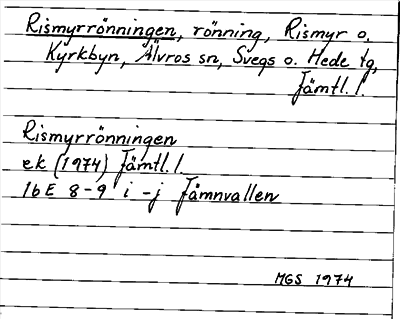 Rismyrrönningen, rönning, Rismyr o.
Kyrkbyn, Älvros sn, Svegs o. Hede tg,
Jämtl. l.
Rismyrrönningen
ek (1974) Jämtl. l
16E 8-9 i-j Jämnvallen
MGS 1974